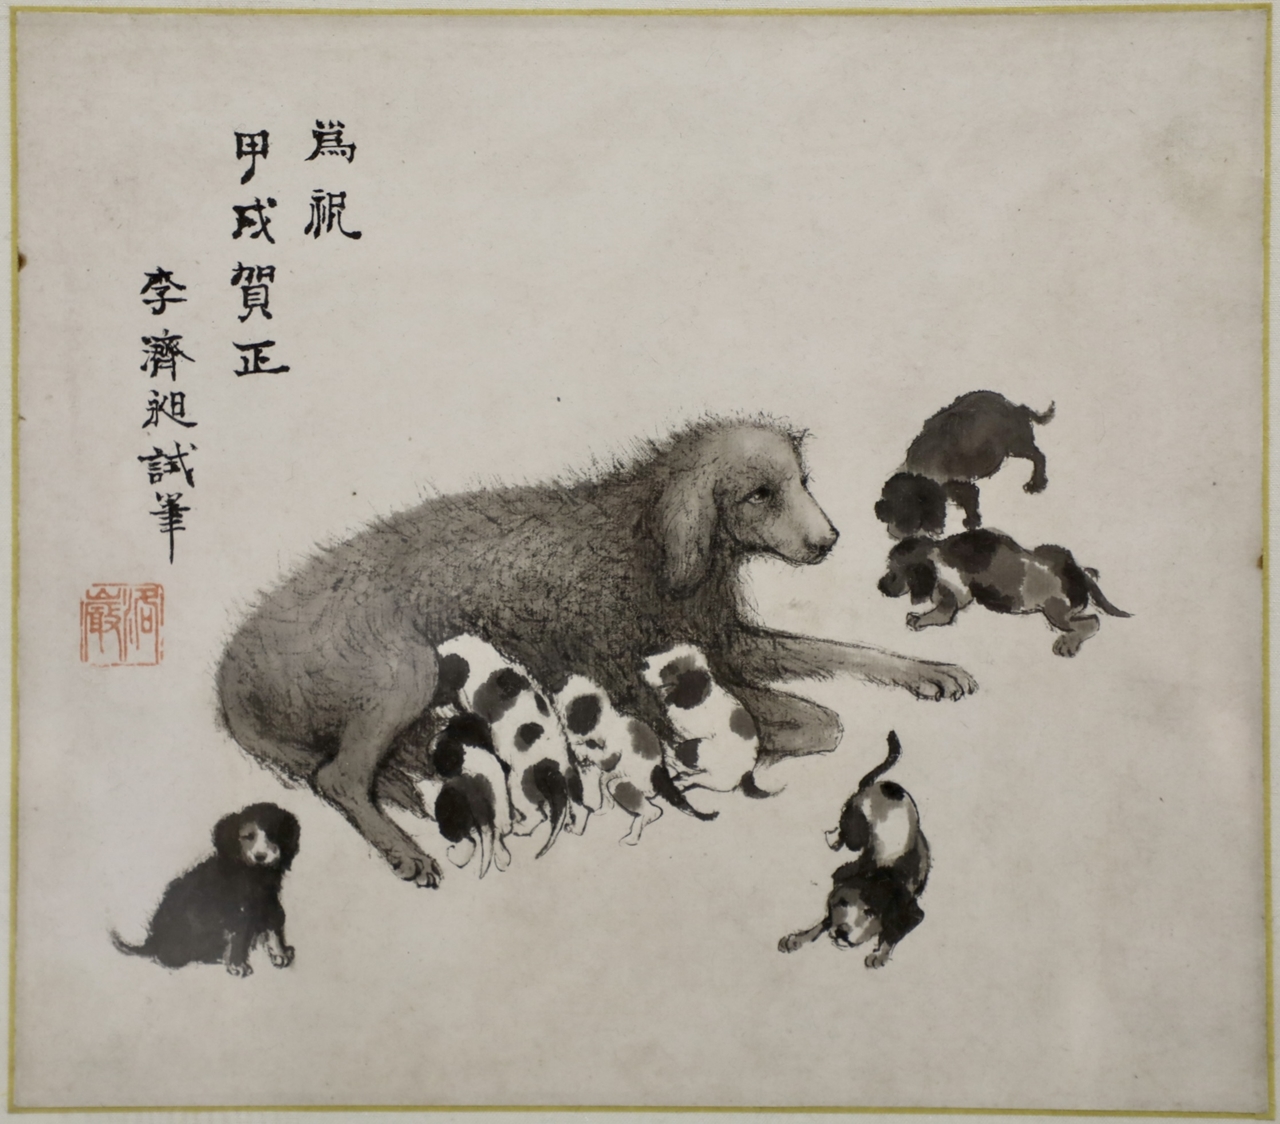 爲祝
甲戌賀正
李濟昶試筆
洛巖